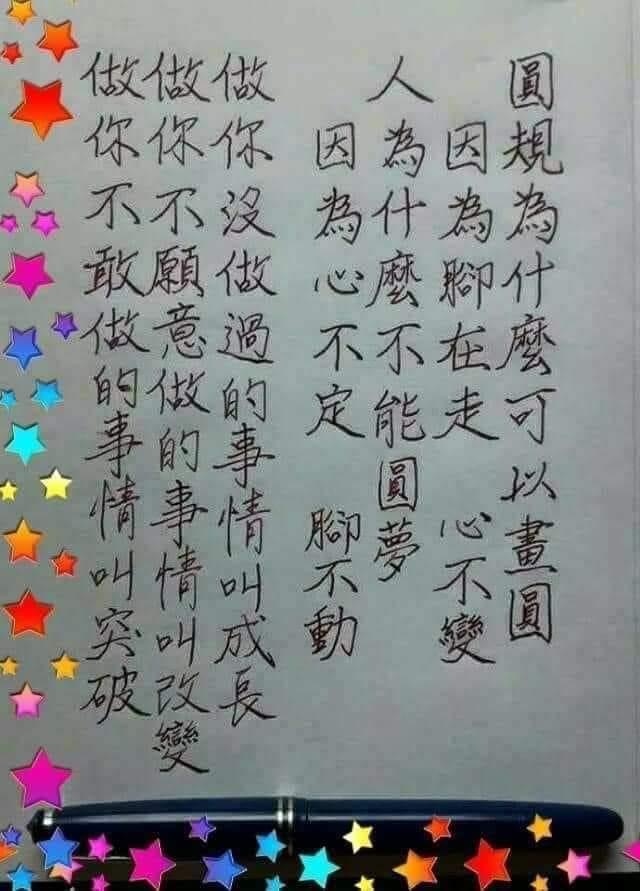 圓規為什麼可以畫圓
因為腳在走 心不變
人為什麼不能圓夢
因為心不定 腳不動
做你沒做過的事情叫成長
做你不願意做的事情叫改變
做你不敢做的事情叫突破